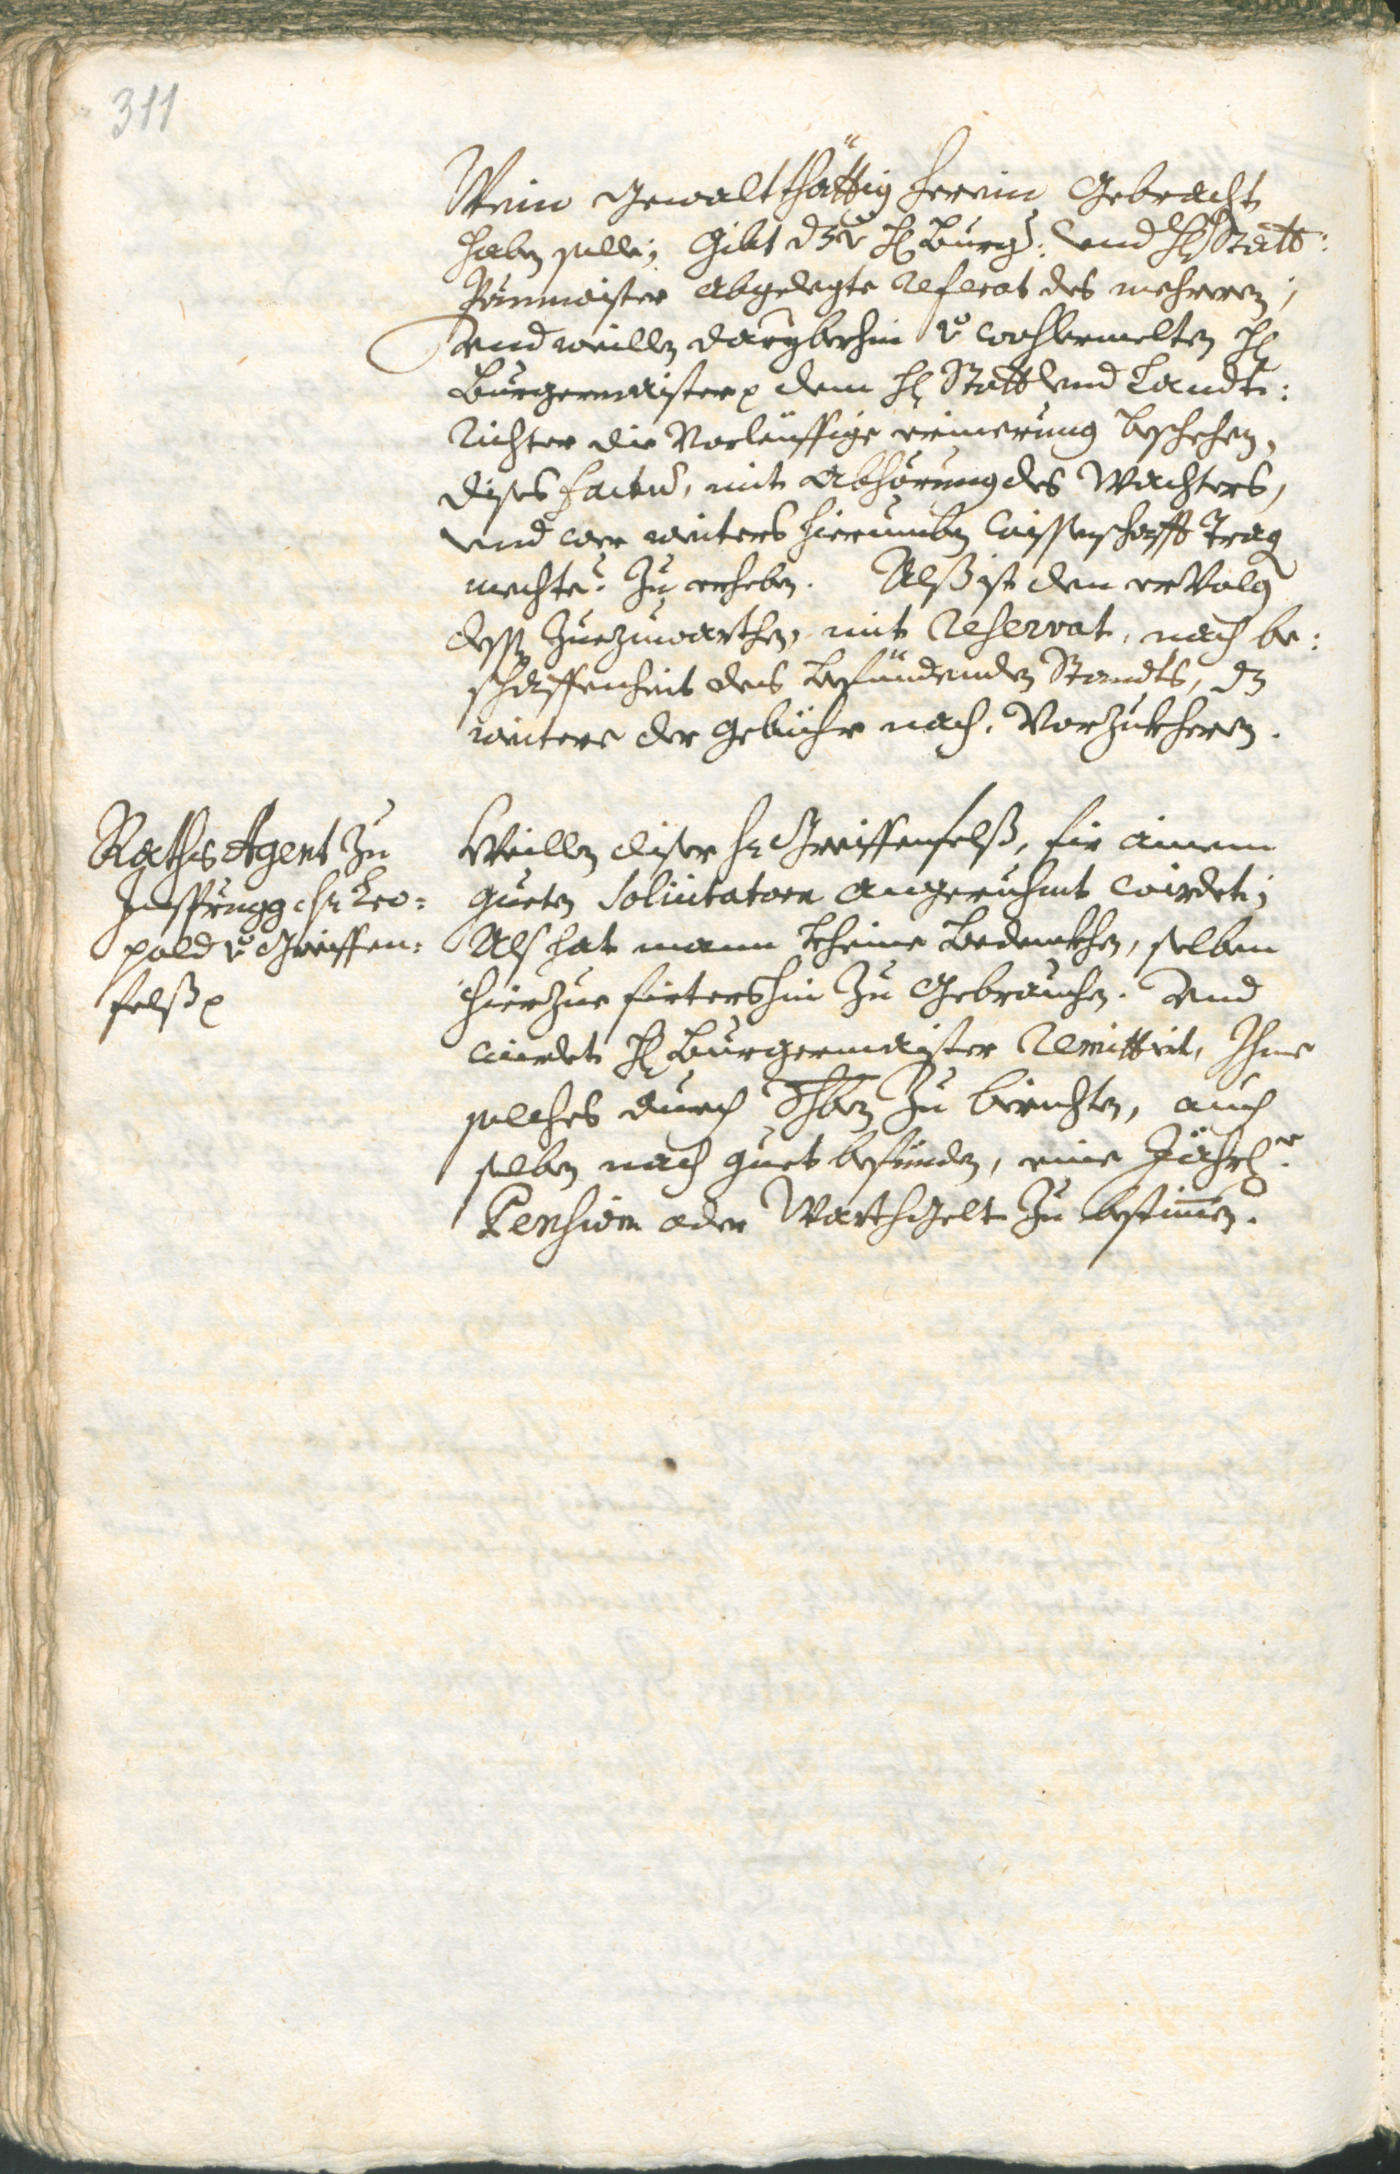 311
Wein gewaltthättig herein gebracht
haben solle; gibt dz v H Burg: vnd H Statt:
Paumaister abgelegte Referat des mehreren;
vnd weillen darÿberhin v wohlermelten H
Burgermaister dem H Statt vnd Landt:
Richter die Vorleüffige erinerung beschehen,
dises factu, mit Abhörung des Wachters,
vnd wer weiters hierumben wissenschafft trag
mechte? zu erheben. Alß ist den ervolg
dessen zuezuwarthen, mit Reservat, nach be:
schaffenheit des befündenden Standts, dz
weitere der gebühr nach, Vorzukheren.
Raths Agent zu
Jnsprugg Hr Leo:
pold v Greiffen:
felß
Weillen diser Hr Greiffenfelß, fir ainem
gueten Solicitatorn angeruhmt wirdet;
Als hat mann kheine bedenkhen, selben
hierzue firtershin zu gebrauchen. Vnd
wirdet H Burgermaister Remittirt, Jhme
solches durch Schben zu berichten, auch
selben nach guet befünden, eine Jährl:
Pension oder Warthgelt zu bestimen.